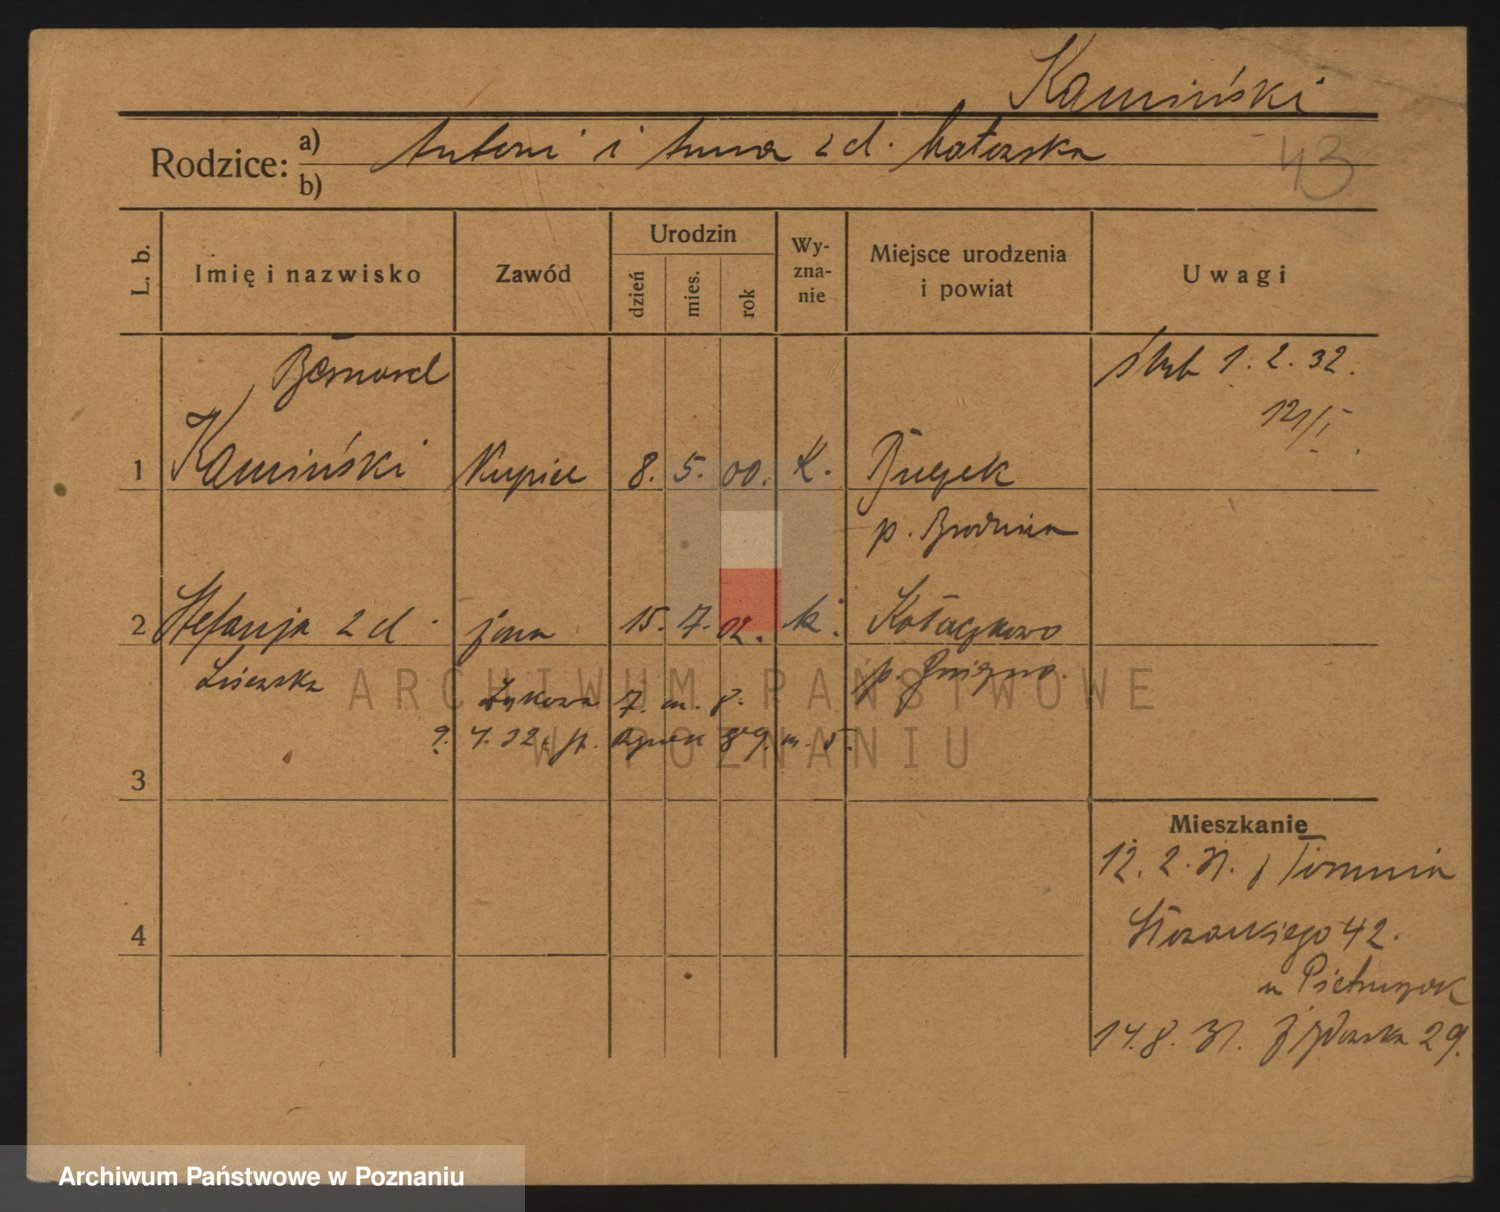 Kamiński
Rodzice: a) Antoni i Anna z d.
b)
43
L. b. Imię i nazwisko Zawód Urodzin dzień mies. rok Wy-zna-nie Miejsce urodzenia i powiat Uwagi
Bernard
1 Kamiński Kupiec 8. 5. 00. k.
ślub 1. 2. 32.
121/I
p. Brodnica
2 Stefanja z d. żona 15. 7. 02. k. Kołaczkowo
p. Gniezno.
7. m. 8.
9. 4. 32. m. 5.
3
4
Mieszkanie
12. 2. 31. z Torunia
42.
u Pietrzyak
14. 8. 31. 29.
ARCHIWUM PAŃSTWOWE
W POZNANIU
Archiwum Państwowe w Poznaniu